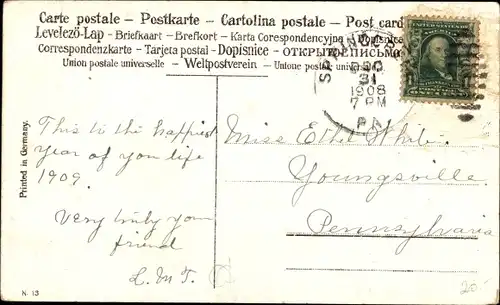 Carte postale – Postkarte – Cartolina postale – Post card
Levelező-Lap – Briefkaart – Brefkort – Karta Corespondencyjna – Dopisnice
Correspondenzkarte – Tarjeta postal – Dopisnice – ОТКРЫТОЕ ПИСЬМО
Union postale universelle – Weltpostverein – Unione postale universale
DEC
31
1908
7 PM
PA
This to the happiest
year of you life
1909.
Very truly your
friend
L.M.T.
Miss Ethel White.
Youngsville
Pennsylvania
Printed in Germany.
N. 13
20